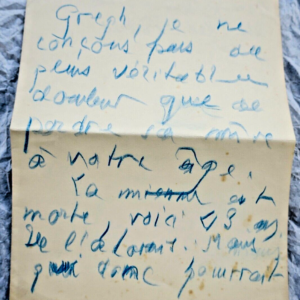 Gregh, je ne
conçois pas de
plus véritable
douleur que de
perdre sa mère
à votre âge.
La mienne est
morte, voici 43 ans
Je l'adorais. Mais
qui donc pourrait